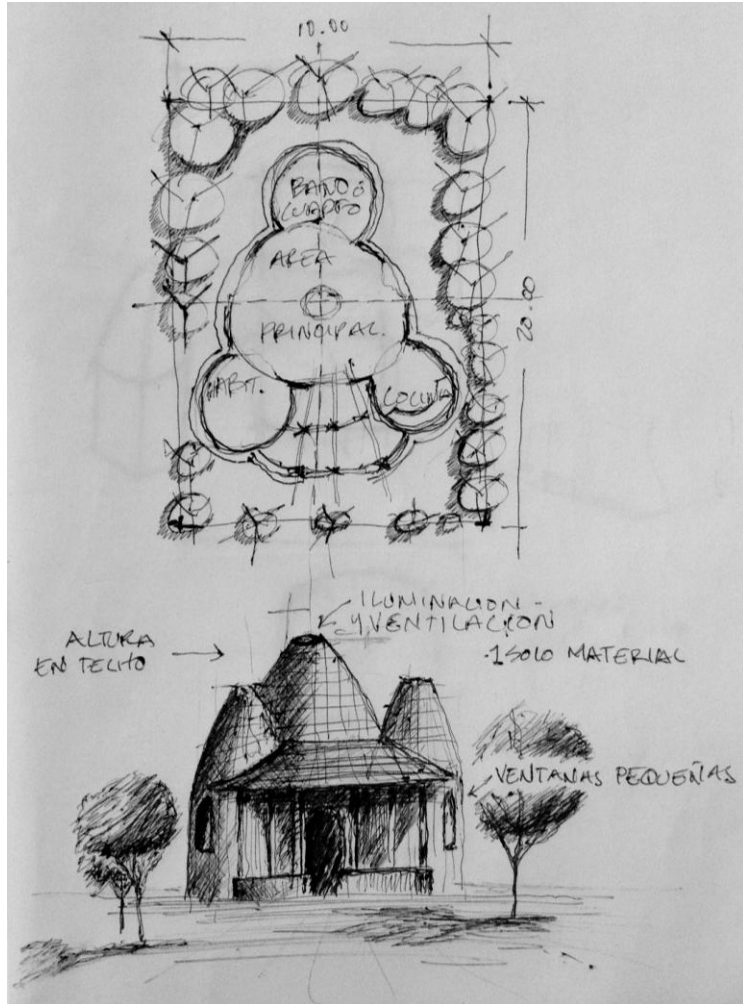 10.00
BAÑO Ó
CUARTO
AREA
PRINCIPAL.
HABIT.
COCINA
20.00
ILUMINACION -
Y VENTILACION
ALTURA
EN TECHO
·1 SOLO MATERIAL
VENTANAS PEQUEÑAS